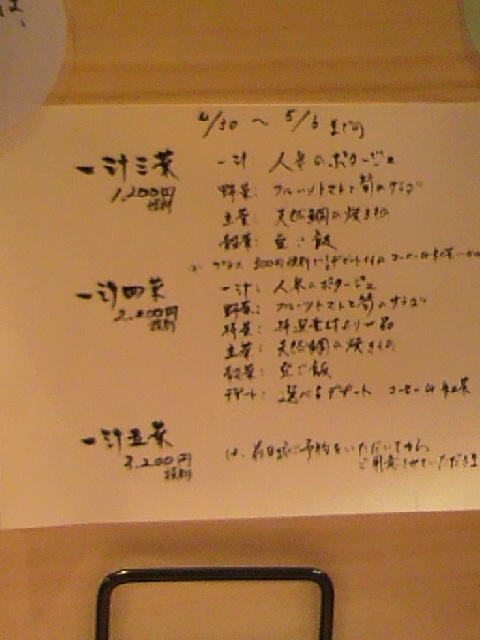 は、
4/30 ～ 5/6 まで
一汁三菜
1,200円
税別
一汁: 人参のポタージュ
野菜: フルーツトマトと筍のサラダ
主菜: 天然鯛の焼きもの
穀菜: 豆ご飯
プラス 500円税別で デザート コーヒー or 紅茶
一汁四菜
2,200円
税別
一汁: 人参のポタージュ
野菜: フルーツトマトと筍のサラダ
特菜: 特選素材より一品
主菜: 天然鯛の焼きもの
穀菜: 豆ご飯
デザート: 選べるデザート コーヒー or 紅茶
一汁五菜
3,200円
税別
は、前日迄に予約をいただいてから
ご用意させていただきま